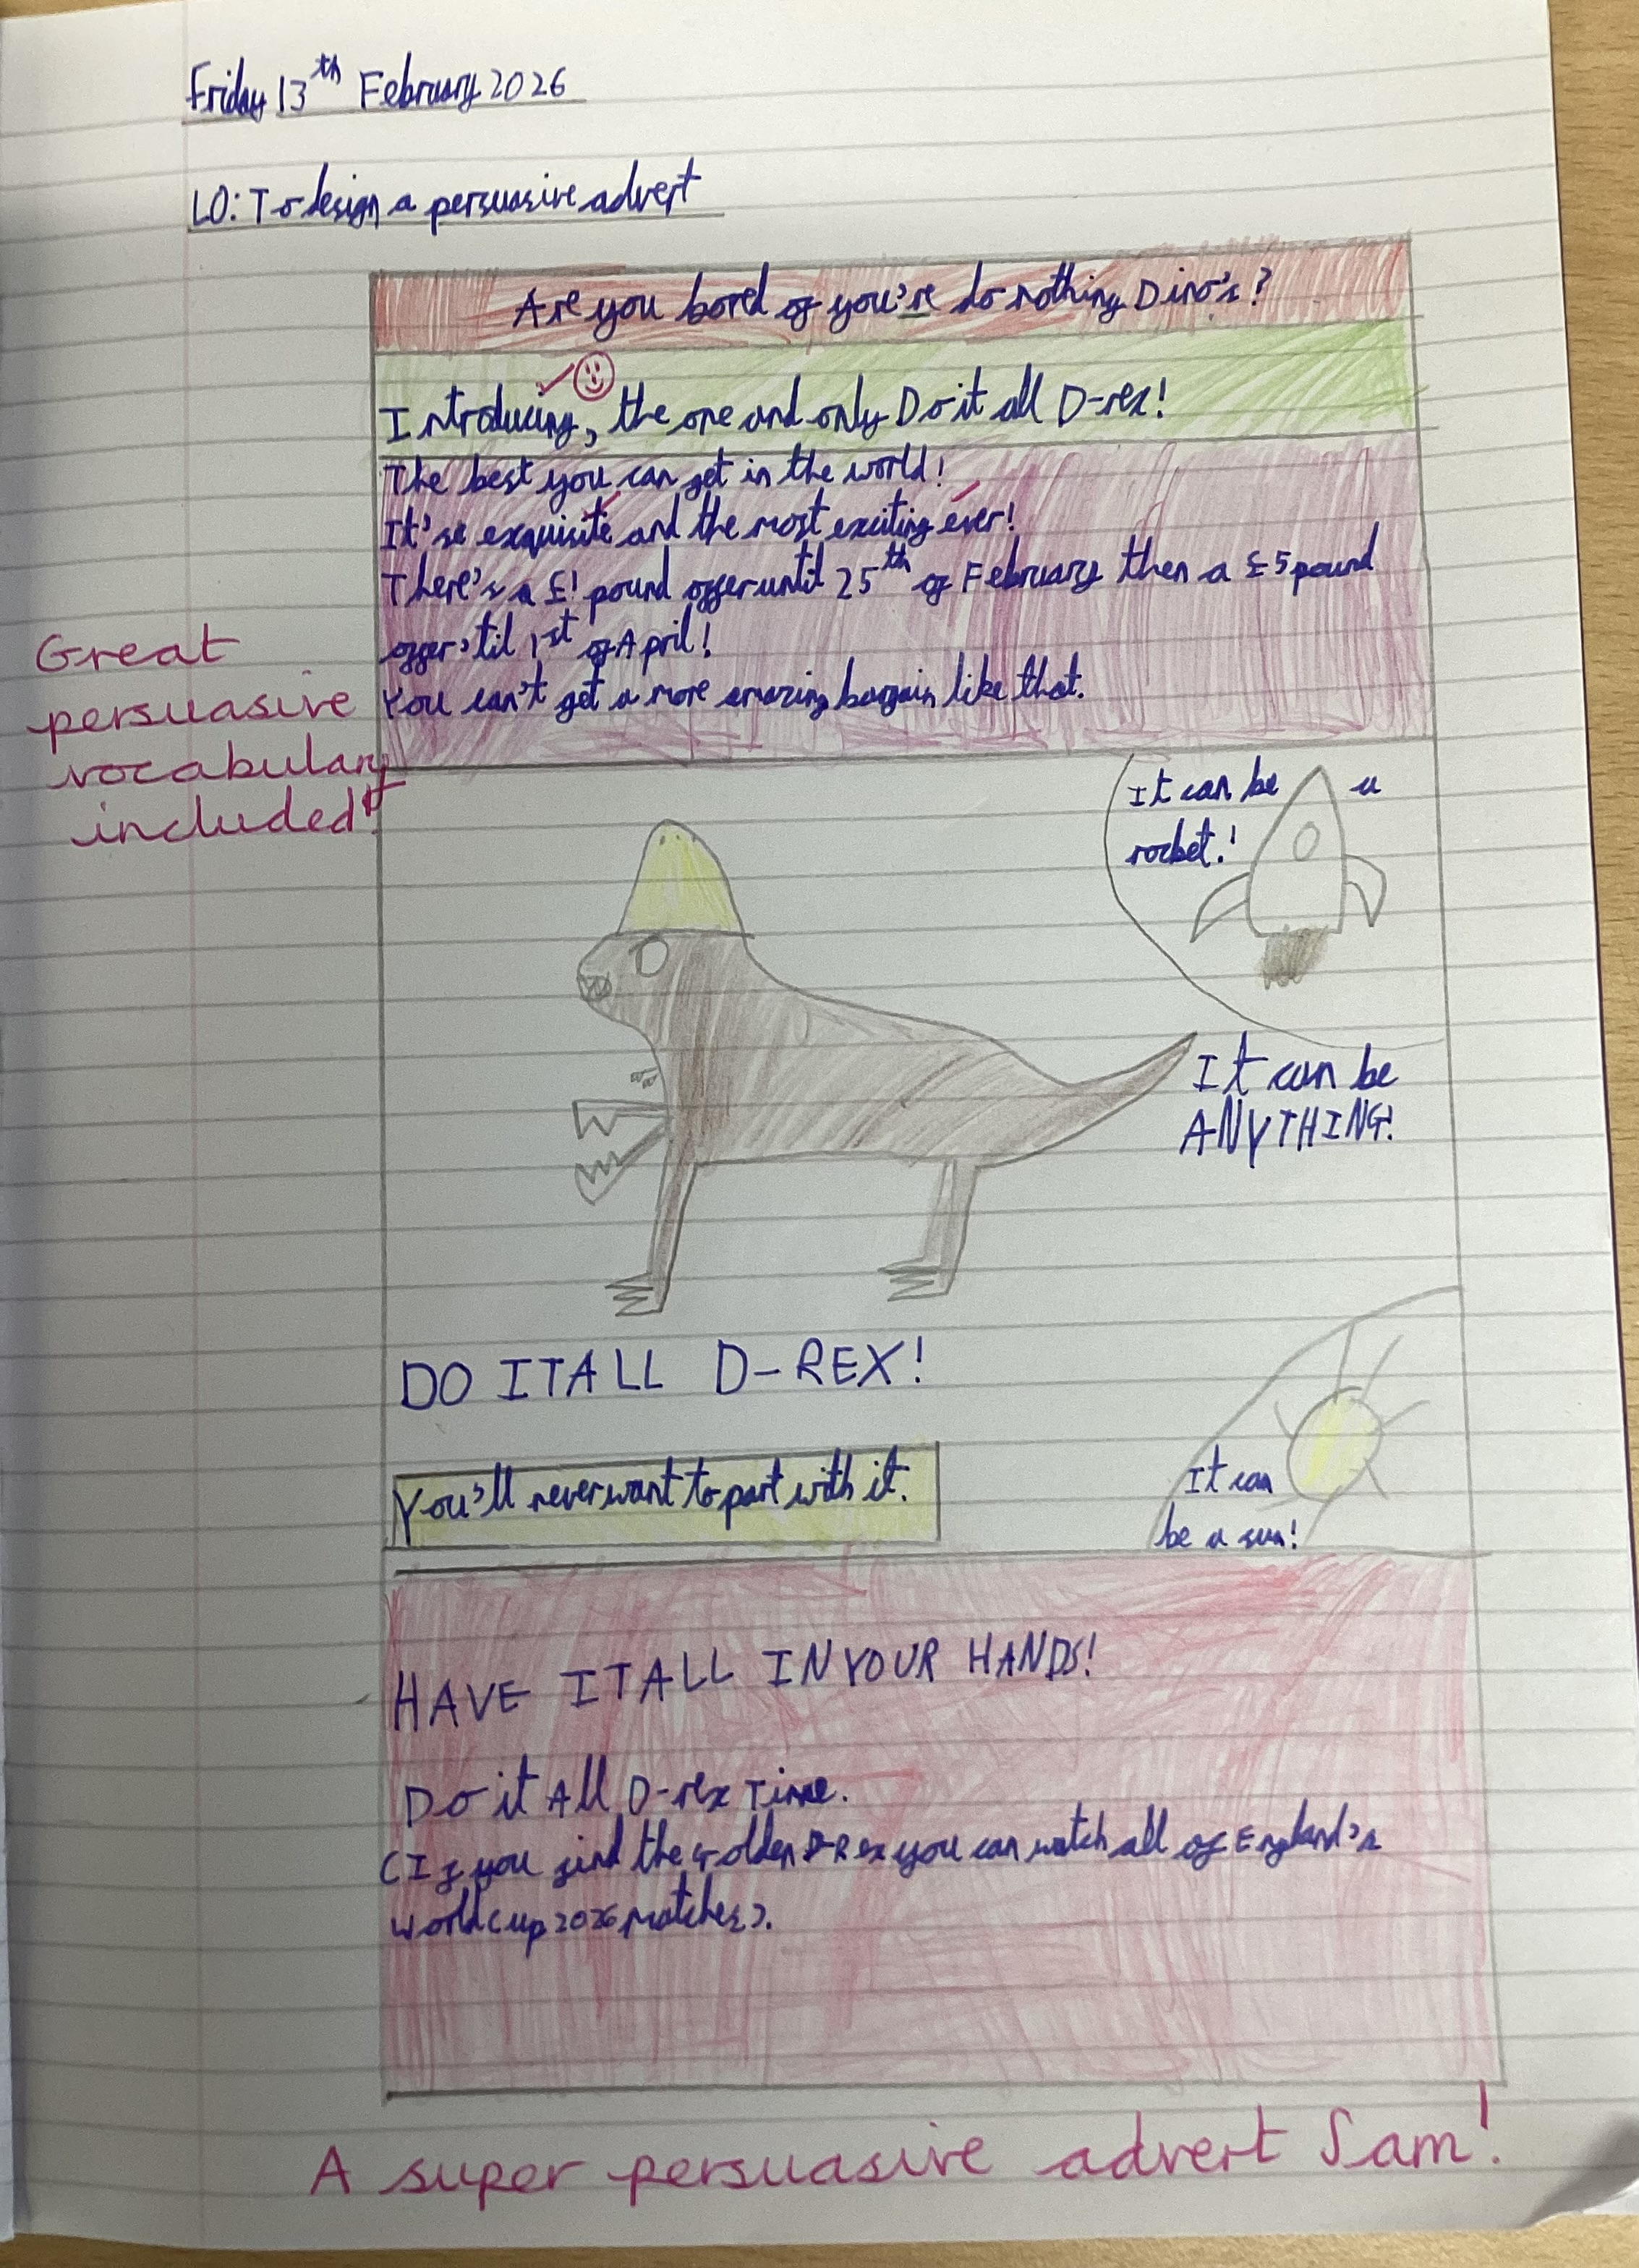 Friday 13th February 2026
LO: To design a persuasive advert
Are you bored of you're do nothing Dino's?
Introducing, the one and only Do it all D-rex!
The best you can get in the world!
It's exquisite and the most exciting ever!
There's a £1 pound offer until 25th of February then a £5 pound
offer 'til 1st of April!
You can't get a more amazing bargain like that.
Great
persuasive
vocabulary
included!
It can be a
rocket!
It can be
ANYTHING!
DO IT ALL D-REX!
You'll never want to part with it.
It can
be a sun!
HAVE IT ALL IN YOUR HANDS!
Do it All D-rex Time.
(If you find the Golden D-Rex you can watch all of England's
World cup 2026 matches).
A super persuasive advert Sam!